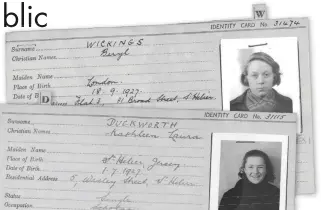 blic
W
IDENTITY CARD No. 31474
Surname WICKINGS
Christian Names Beryl
Maiden Name
Place of Birth London
Date of B 18.9.1927
Flat 2, 21 Broad Street, St. Helier
D
IDENTITY CARD No. 31115
Surname DUCKWORTH
Christian Names Kathleen Laura
Maiden Name
Place of Birth. St Helier, Jersey.
Date of Birth. 1.7.1927.
Residential Address 5, Wesley Street, St. Helier
Status Single
Occupation